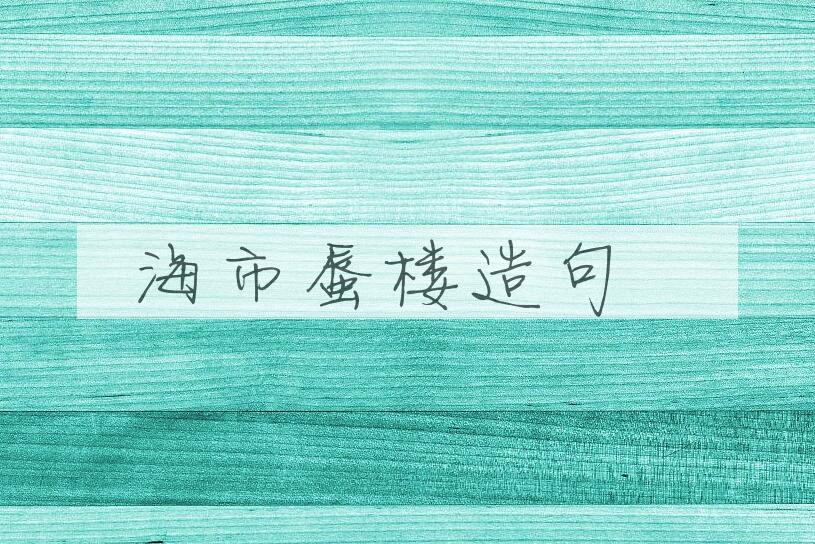 海市蜃楼造句